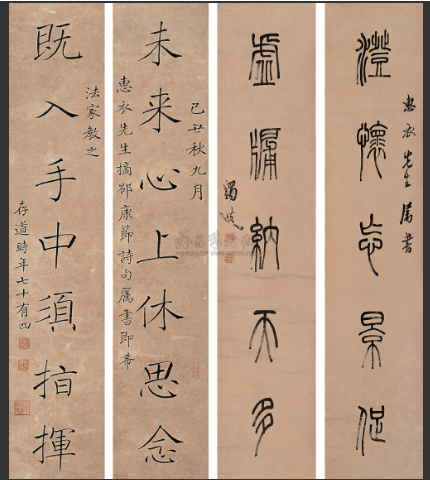 惠衣先生屬書
澄懷忘景促
虛牖納天多
蠲叟
己丑秋九月
未来心上休思念
惠衣先生摘邵康節詩句属書即希
法家教之
既入手中須指揮
存道時年七十有四